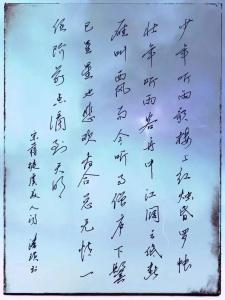 少年听雨歌楼上红烛昏罗帐
壮年听雨客舟中江阔云低断
雁叫西风而今听雨僧庐下鬓
已星星也悲欢离合总无情一
任阶前点滴到天明
宋蒋捷虞美人词 书